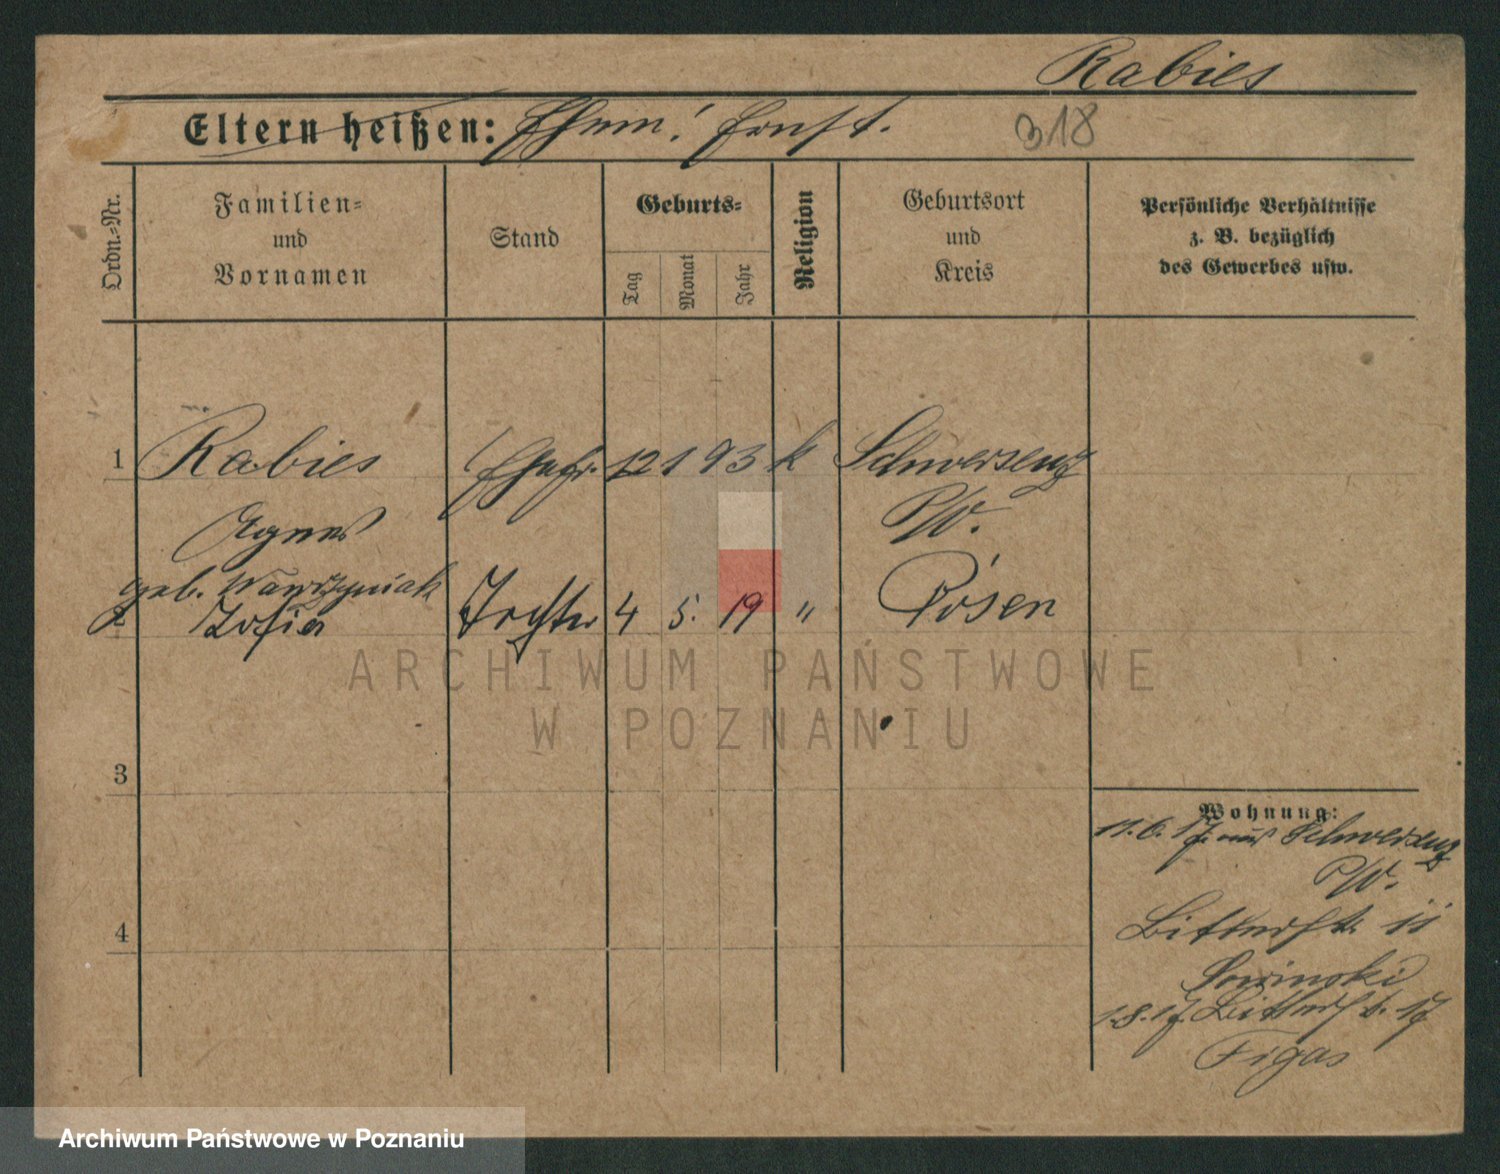 Rabies
Eltern heißen: Ehem! Ernst.
318
Ordn.-Nr.
Familien-
und
Vornamen
Stand
Geburts-
Tag
Monat
Jahr
Religion
Geburtsort
und
Kreis
Persönliche Verhältnisse
z. B. bezüglich
des Gewerbes usw.
1 Rabies Ehefr. 12 1 93 k Schwersenz
Agnes P/W.
geb. Wawrzyniak
2 Zofia Tochter 4 5. 19 " Posen
ARCHIWUM PAŃSTWOWE
W POZNANIU
3
4
Wohnung:
11.6.17. aus Schwersenz
P/W.
Bitterst. 11
1.8.17. Bitterst. 17
Figas
Archiwum Państwowe w Poznaniu